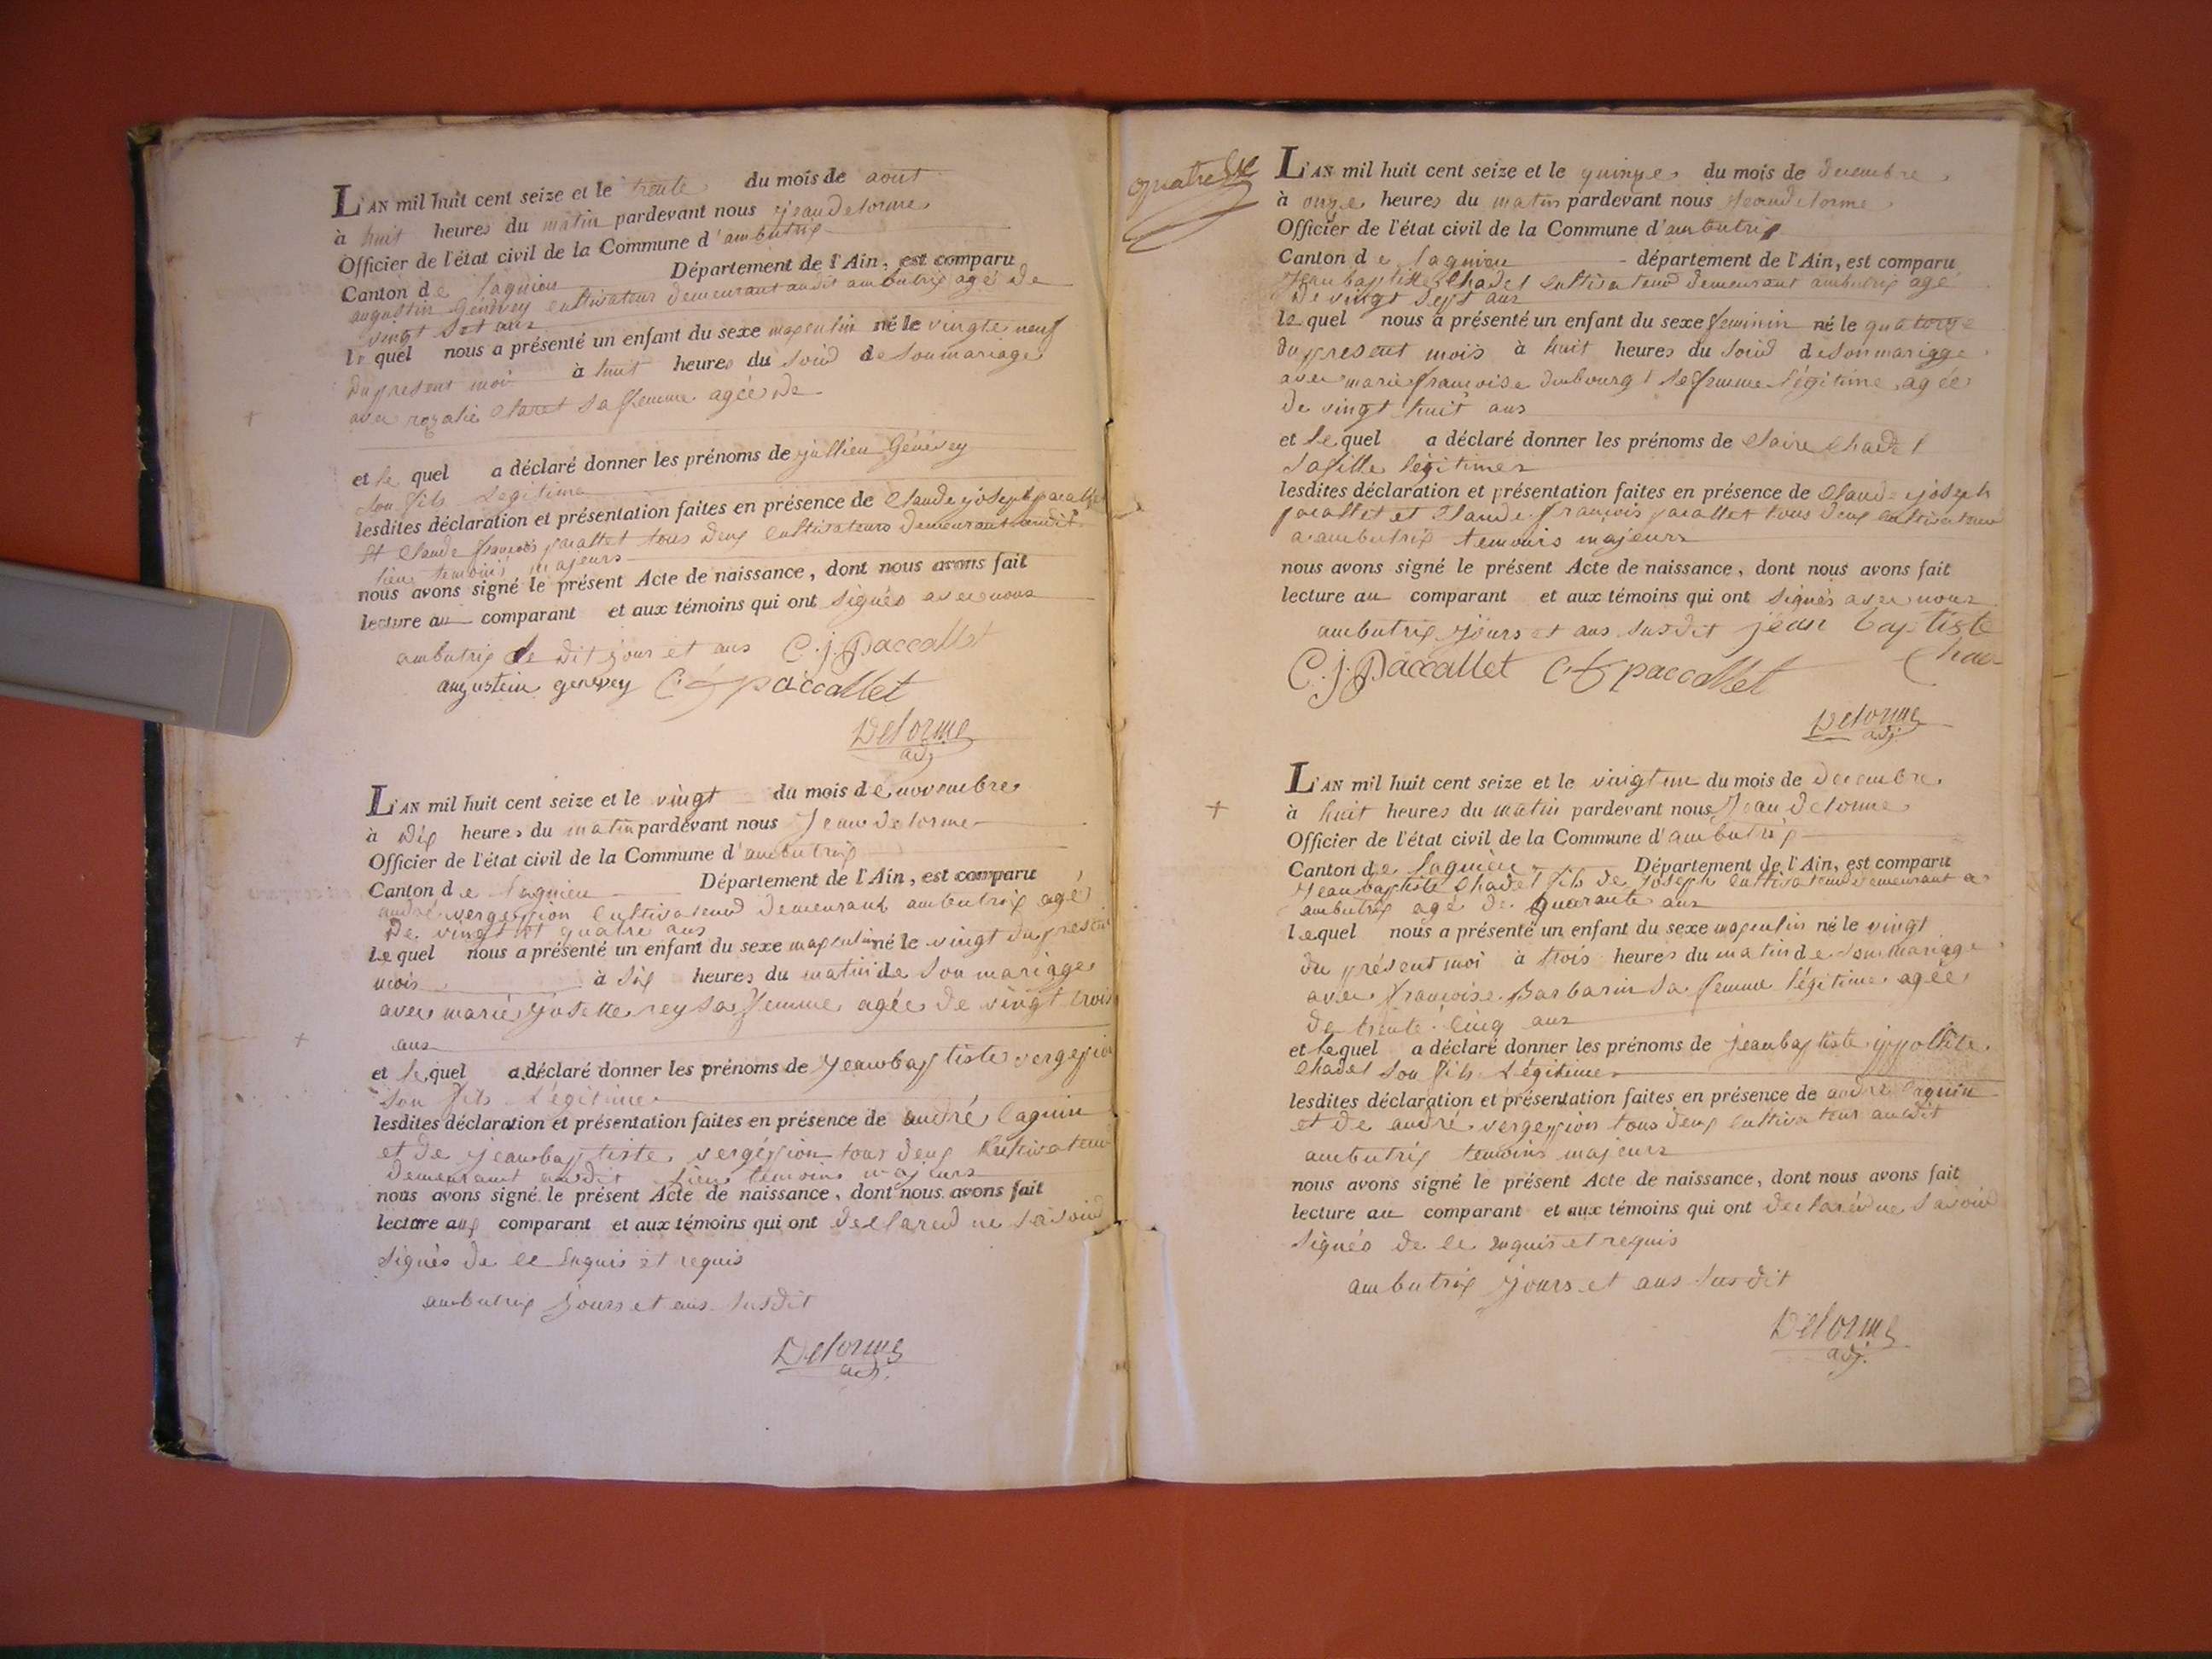 L'AN mil huit cent seize et le trente du mois de aout
à huit heures du matin pardevant nous jean delorme
Officier de l'état civil de la Commune d'ambutrix
Canton de lagnieu Département de l'Ain, est comparu
augustin Génévey cultivateur demeurant audit ambutrix agé de
vingt set ans
le quel nous a présenté un enfant du sexe masculin né le vingte neuf
du present moi à huit heures du soird de son mariage
avec rozalie Claret sa femme agée de
et le quel a déclaré donner les prénoms de jullien Génévey
son fils legitime
lesdites déclaration et présentation faites en présence de Claude joseph pacallet
et Claude françois pacallet tous deux cultivateurs demeurant audit
lieu temoins majeurs
nous avons signé le présent Acte de naissance, dont nous avons fait
lecture au comparant et aux témoins qui ont signés avec nous
ambutrix le dit jour et ans C. j. Paccallet
augustin genevey C. f paccallet
Delorme
adj
L'AN mil huit cent seize et le vingt du mois de novembre
à dix heures du matin pardevant nous Jean delorme
Officier de l'état civil de la Commune d'ambutrix
Canton de lagnieu Département de l'Ain, est comparu
andré vergession cultivateurd demeurant ambutrix agé
de vingt et quatre ans
le quel nous a présenté un enfant du sexe masculin né le vingt du present
mois à six heures du matin de son mariage
avec marie josette rey sa femme agée de vingt trois
ans
et le quel a déclaré donner les prénoms de jeanbaptiste vergession
son fils légitime
lesdites déclaration et présentation faites en présence de andré laguin
et de jeanbaptiste vergéssion tous deux Cultivateurd
demeurant audit lieu temoins majeurs
nous avons signé le présent Acte de naissance, dont nous avons fait
lecture aux comparant et aux témoins qui ont declared ne savoird
signés de ce enquis et requis
ambutrix jours et ans susdit
Delorme
adj.
quatre
L'AN mil huit cent seize et le quinze du mois de decembre
à onze heures du matin pardevant nous jean delorme
Officier de l'état civil de la Commune d'ambutrix
Canton de lagnieu département de l'Ain, est comparu
Jean baptiste Chadel cultivateurd demeurant ambutrix agé
de vingt sept ans
le quel nous a présenté un enfant du sexe feminin né le quatorze
du present mois à huit heures du soird de son mariage
avec marie françoise dubourg sa femme légitime agée
de vingt huit ans
et le quel a déclaré donner les prénoms de Claire Chadel
sa fille légitimes
lesdites déclaration et présentation faites en présence de Claude joseph
pacallet et Claude françois pacallet tous deux cultivateurd
a ambutrix temoins majeurs
nous avons signé le présent Acte de naissance, dont nous avons fait
lecture au comparant et aux témoins qui ont signés avec nous
ambutrix jours et ans susdit jean baptiste
C. j. Paccallet C f paccallet
Delorme
adj.
L'AN mil huit cent seize et le vingt un du mois de decembre
à huit heures du matin pardevant nous Jean delorme
Officier de l'état civil de la Commune d'ambutrix
Canton de lagnieu Département de l'Ain, est comparu
Jean baptiste Chadel fils de joseph cultivateurd demeurant a
ambutrix agé de quarante ans
lequel nous a présenté un enfant du sexe masculin né le vingt
du présent moi à trois heures du matin de son mariage
avec françoise Barbarin sa femme légitime agée
de trente cinq ans
et lequel a déclaré donner les prénoms de jeanbaptiste ippolite
Chadel son fils légitime
lesdites déclaration et présentation faites en présence de andré laguin
et de andré vergession tous deux cultivateur audit
ambutrix temoins majeurs
nous avons signé le présent Acte de naissance, dont nous avons fait
lecture au comparant et aux témoins qui ont declaréd ne savoird
signés de ce enquis et requis
ambutrix jours et ans susdit
Delorme
adj.